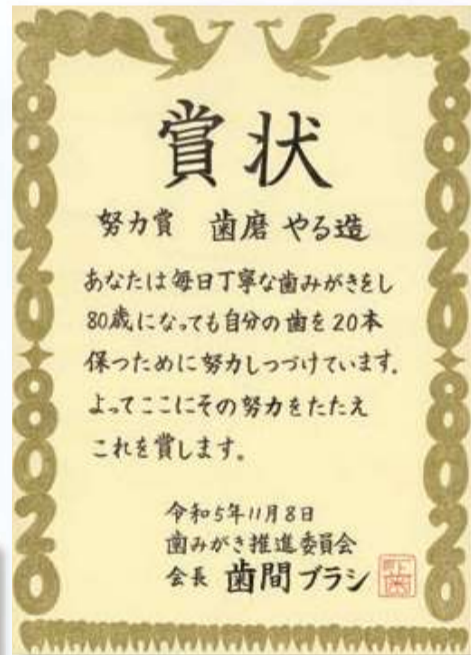 賞状
努力賞 歯磨 やる造
あなたは毎日丁寧な歯みがきをし
80歳になっても自分の歯を20本
保つために努力しつづけています。
よってここにその努力をたたえ
これを賞します。
令和5年11月8日
歯みがき推進委員会
会長 歯間 ブラシ
8020✦8020
8020✦8020